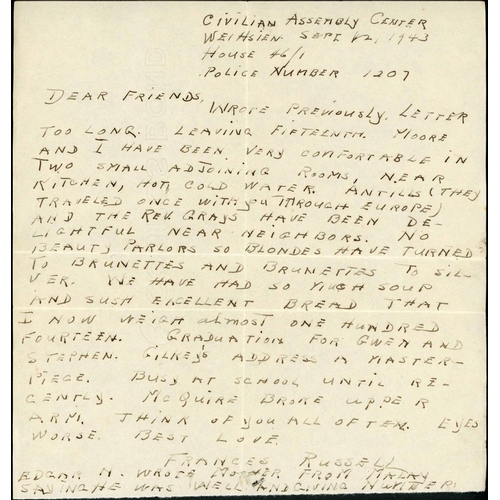 Civilian Assembly Center
Weihsien. Sept 12, 1943
House 46/1
Police Number 1207
Dear Friends,
Wrote previously. Letter
too long. Leaving fifteenth. Moore
and I have been very comfortable in
two small adjoining rooms, near
kitchen, hot, cold water. Antills (they
traveled once with you through Europe)
and the Rev. Grays have been de-
lightful near neighbors. No
beauty parlors so blondes have turned
to brunettes and brunettes to sil-
ver. We have had so much soup
and sush excellent bread that
I now weigh almost one hundred
fourteen. Graduation for Gwen and
Stephen. Gilkeys address a master-
piece. Busy at school until re-
cently. McQuire broke upper
arm. Think of you all often. Eyes
worse. Best love.
Frances Russell
Edgar N. wrote mother from
saying he was well and giving